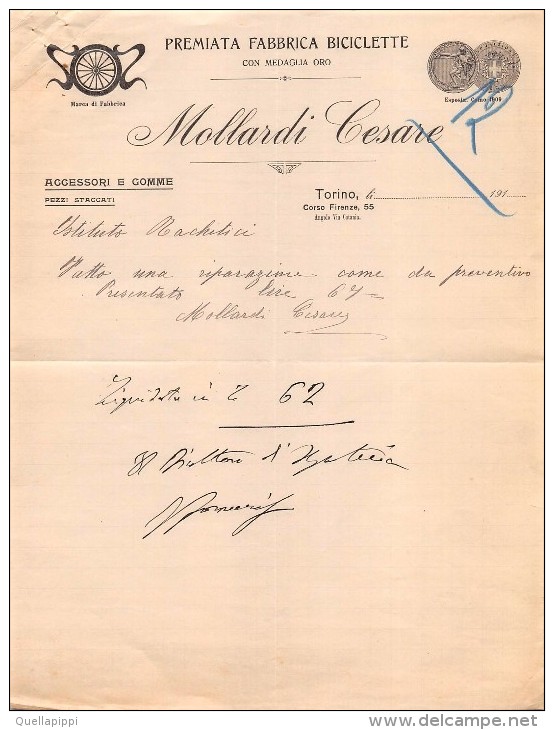 PREMIATA FABBRICA BICICLETTE
CON MEDAGLIA ORO
Marca di Fabbrica
Esposiz. Como 1909
Mollardi Cesare
ACCESSORI E GOMME
PEZZI STACCATI
Torino, li 191
Corso Firenze, 55
Angolo Via Catania.
Istituto Rachitici
Fatto una riparazione come da preventivo
Presentato lire 67
Mollardi Cesare
Liquidata in £ 62
Il Direttore
Quellapippi
delcampe.net